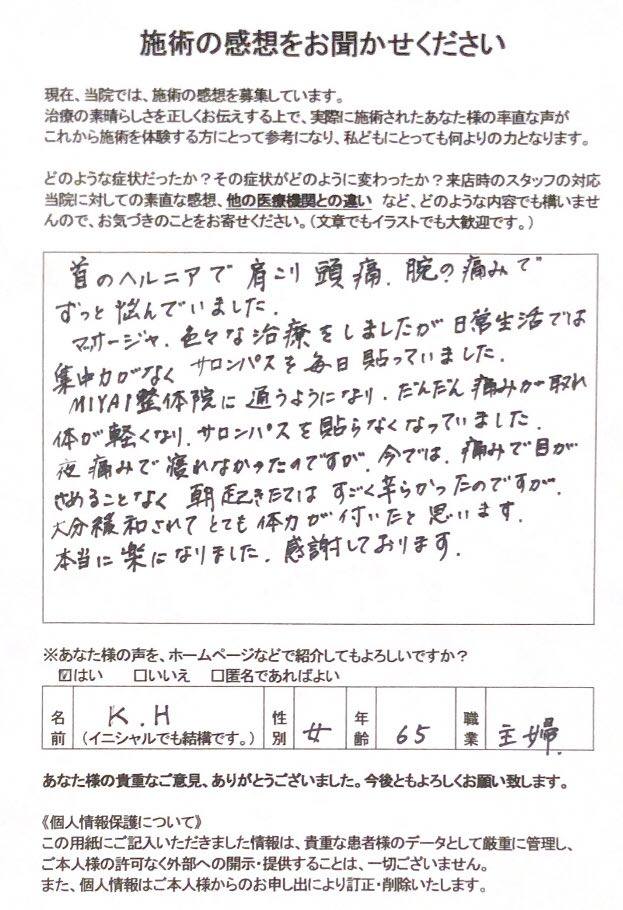 施術の感想をお聞かせください
現在、当院では、施術の感想を募集しています。
治療の素晴らしさを正しくお伝えする上で、実際に施術されたあなた様の率直な声が
これから施術を体験する方にとって参考になり、私どもにとっても何よりの力となります。
どのような症状だったか？その症状がどのように変わったか？来店時のスタッフの対応
当院に対しての素直な感想、他の医療機関との違い など、どのような内容でも構いませ
んので、お気づきのことをお寄せください。（文章でもイラストでも大歓迎です。）
首のヘルニアで肩こり頭痛、腕の痛みで
ずっと悩んでいました。
マッサージャ、色々な治療をしましたが日常生活では
集中力がなくサロンパスを毎日貼っていました。
MIYAI整体院に通うようになり、だんだん痛みが取れ
体が軽くなり、サロンパスを貼らなくなっていました。
夜痛みで寝れなかったのですが、今では、痛みで目が
さめることなく朝起きたてはすごく辛らかったのですが、
大分緩和されてとても体力が付いたと思います。
本当に楽になりました。感謝しております。
※あなた様の声を、ホームページなどで紹介してもよろしいですか？
☑はい □いいえ □匿名であればよい
名前 K.H （イニシャルでも結構です。） 性別 女 年齢 65 職業 主婦
あなた様の貴重なご意見、ありがとうございました。今後ともよろしくお願い致します。
《個人情報保護について》
この用紙にご記入いただきました情報は、貴重な患者様のデータとして厳重に管理し、
ご本人様の許可なく外部への開示・提供することは、一切ございません。
また、個人情報はご本人様からのお申し出により訂正・削除いたします。